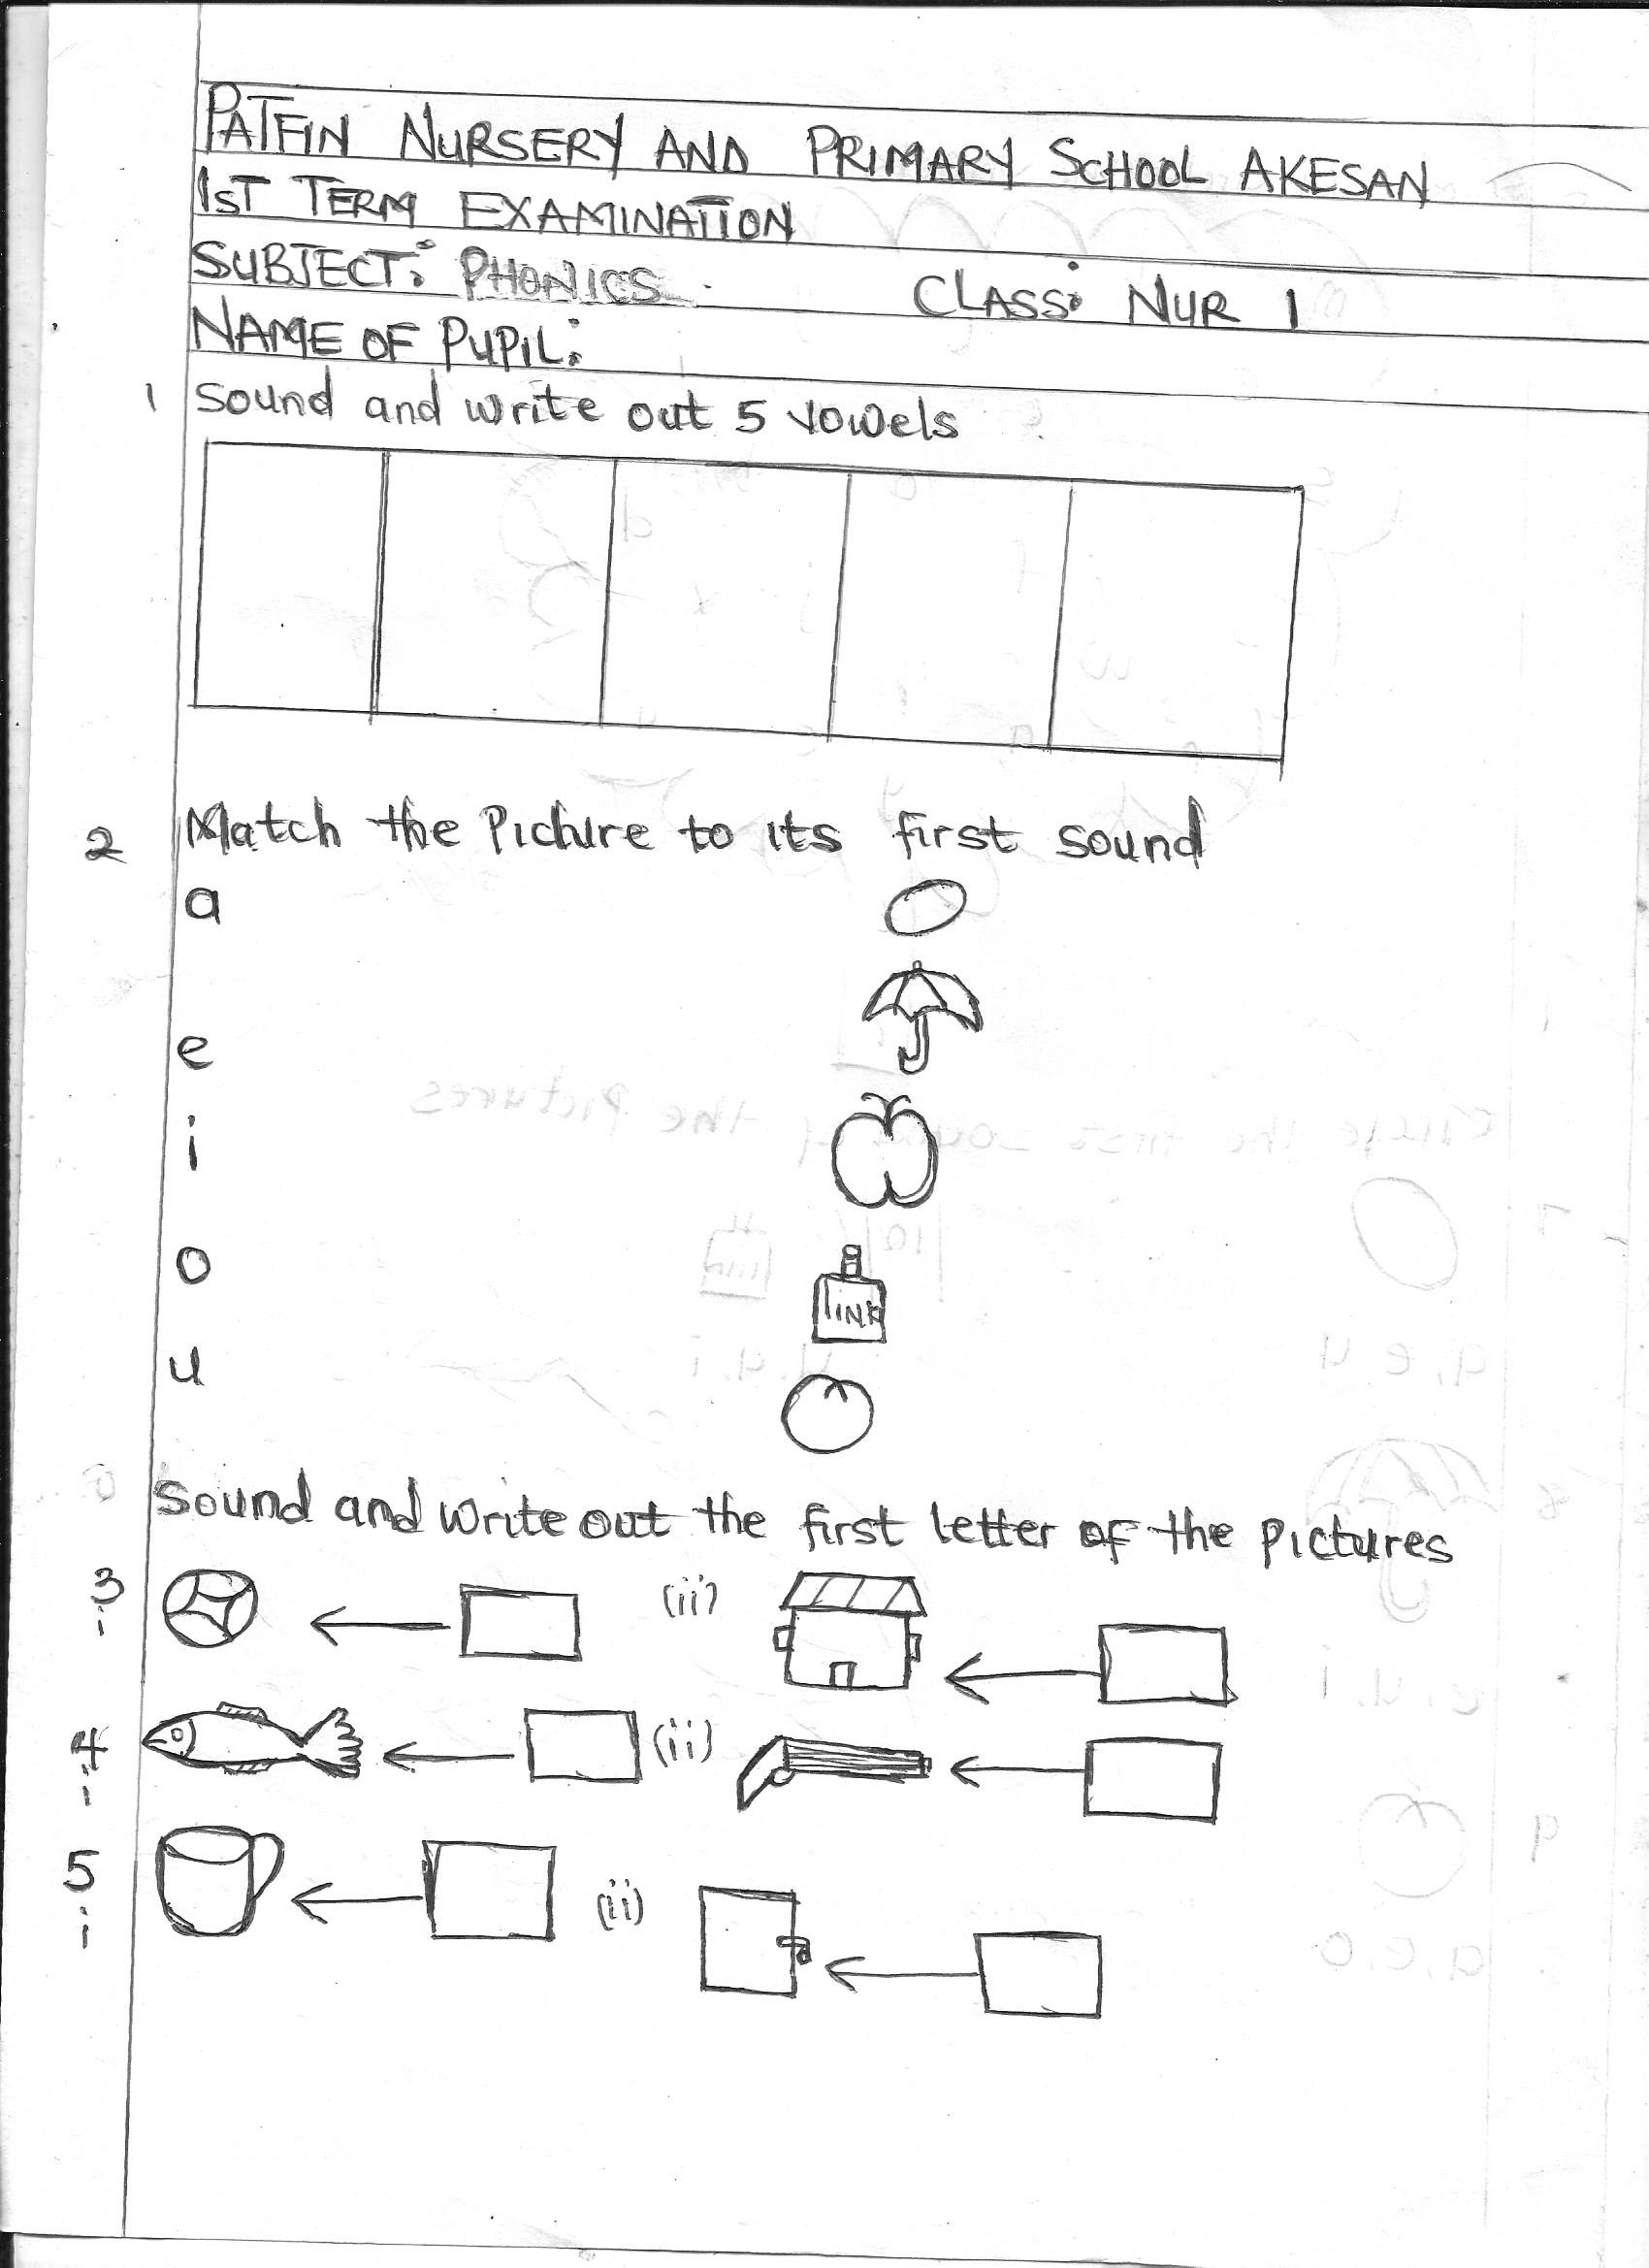 PATFIN NURSERY AND PRIMARY SCHOOL AKESAN
1ST TERM EXAMINATION
SUBJECT: PHONICS CLASS: NUR 1
NAME OF PUPIL:
1 Sound and write out 5 vowels
2 Match the Picture to its first sound
a
e
i
INK
o
u
Sound and write out the first letter of the pictures
3 i (ii)
4 i (ii)
5 i (ii)